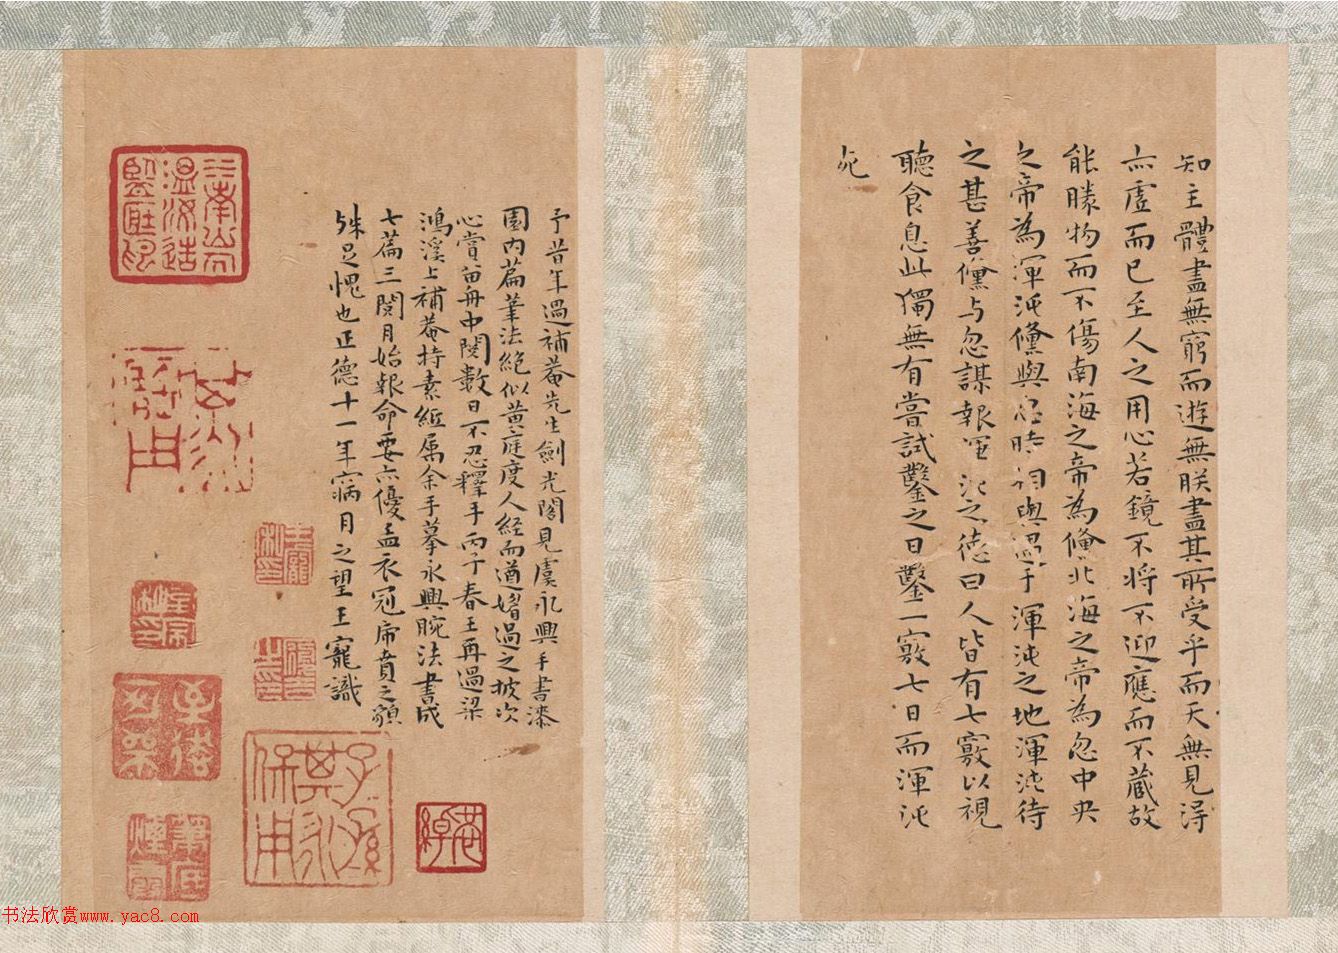 知主體盡無窮而遊無朕盡其所受乎而天無見得
亦虛而已至人之用心若鏡不將不迎應而不藏故
能勝物而不傷南海之帝為儵北海之帝為忽中央
之帝為渾沌儵與忽時相與遇于渾沌之地渾沌待
之甚善儵与忽謀報渾沌之德曰人皆有七竅以視
聽食息此獨無有嘗試鑿之日鑿一竅七日而渾沌
死
予昔年過補菴先生劍光閣見虞永興手書漆
園內篇筆法絕似黃庭度人經而遒媚過之披次
心賞留舟中閱數日不忍釋手丙子春王再過梁
鴻溪上補菴持素絙属余手摹永興腕法書成
七篇三閱月始報命要亦優孟衣冠虎賁之貌
殊足愧也正德十一年病月之望王寵識
子孫其永保用
書法欣賞www.yac8.com